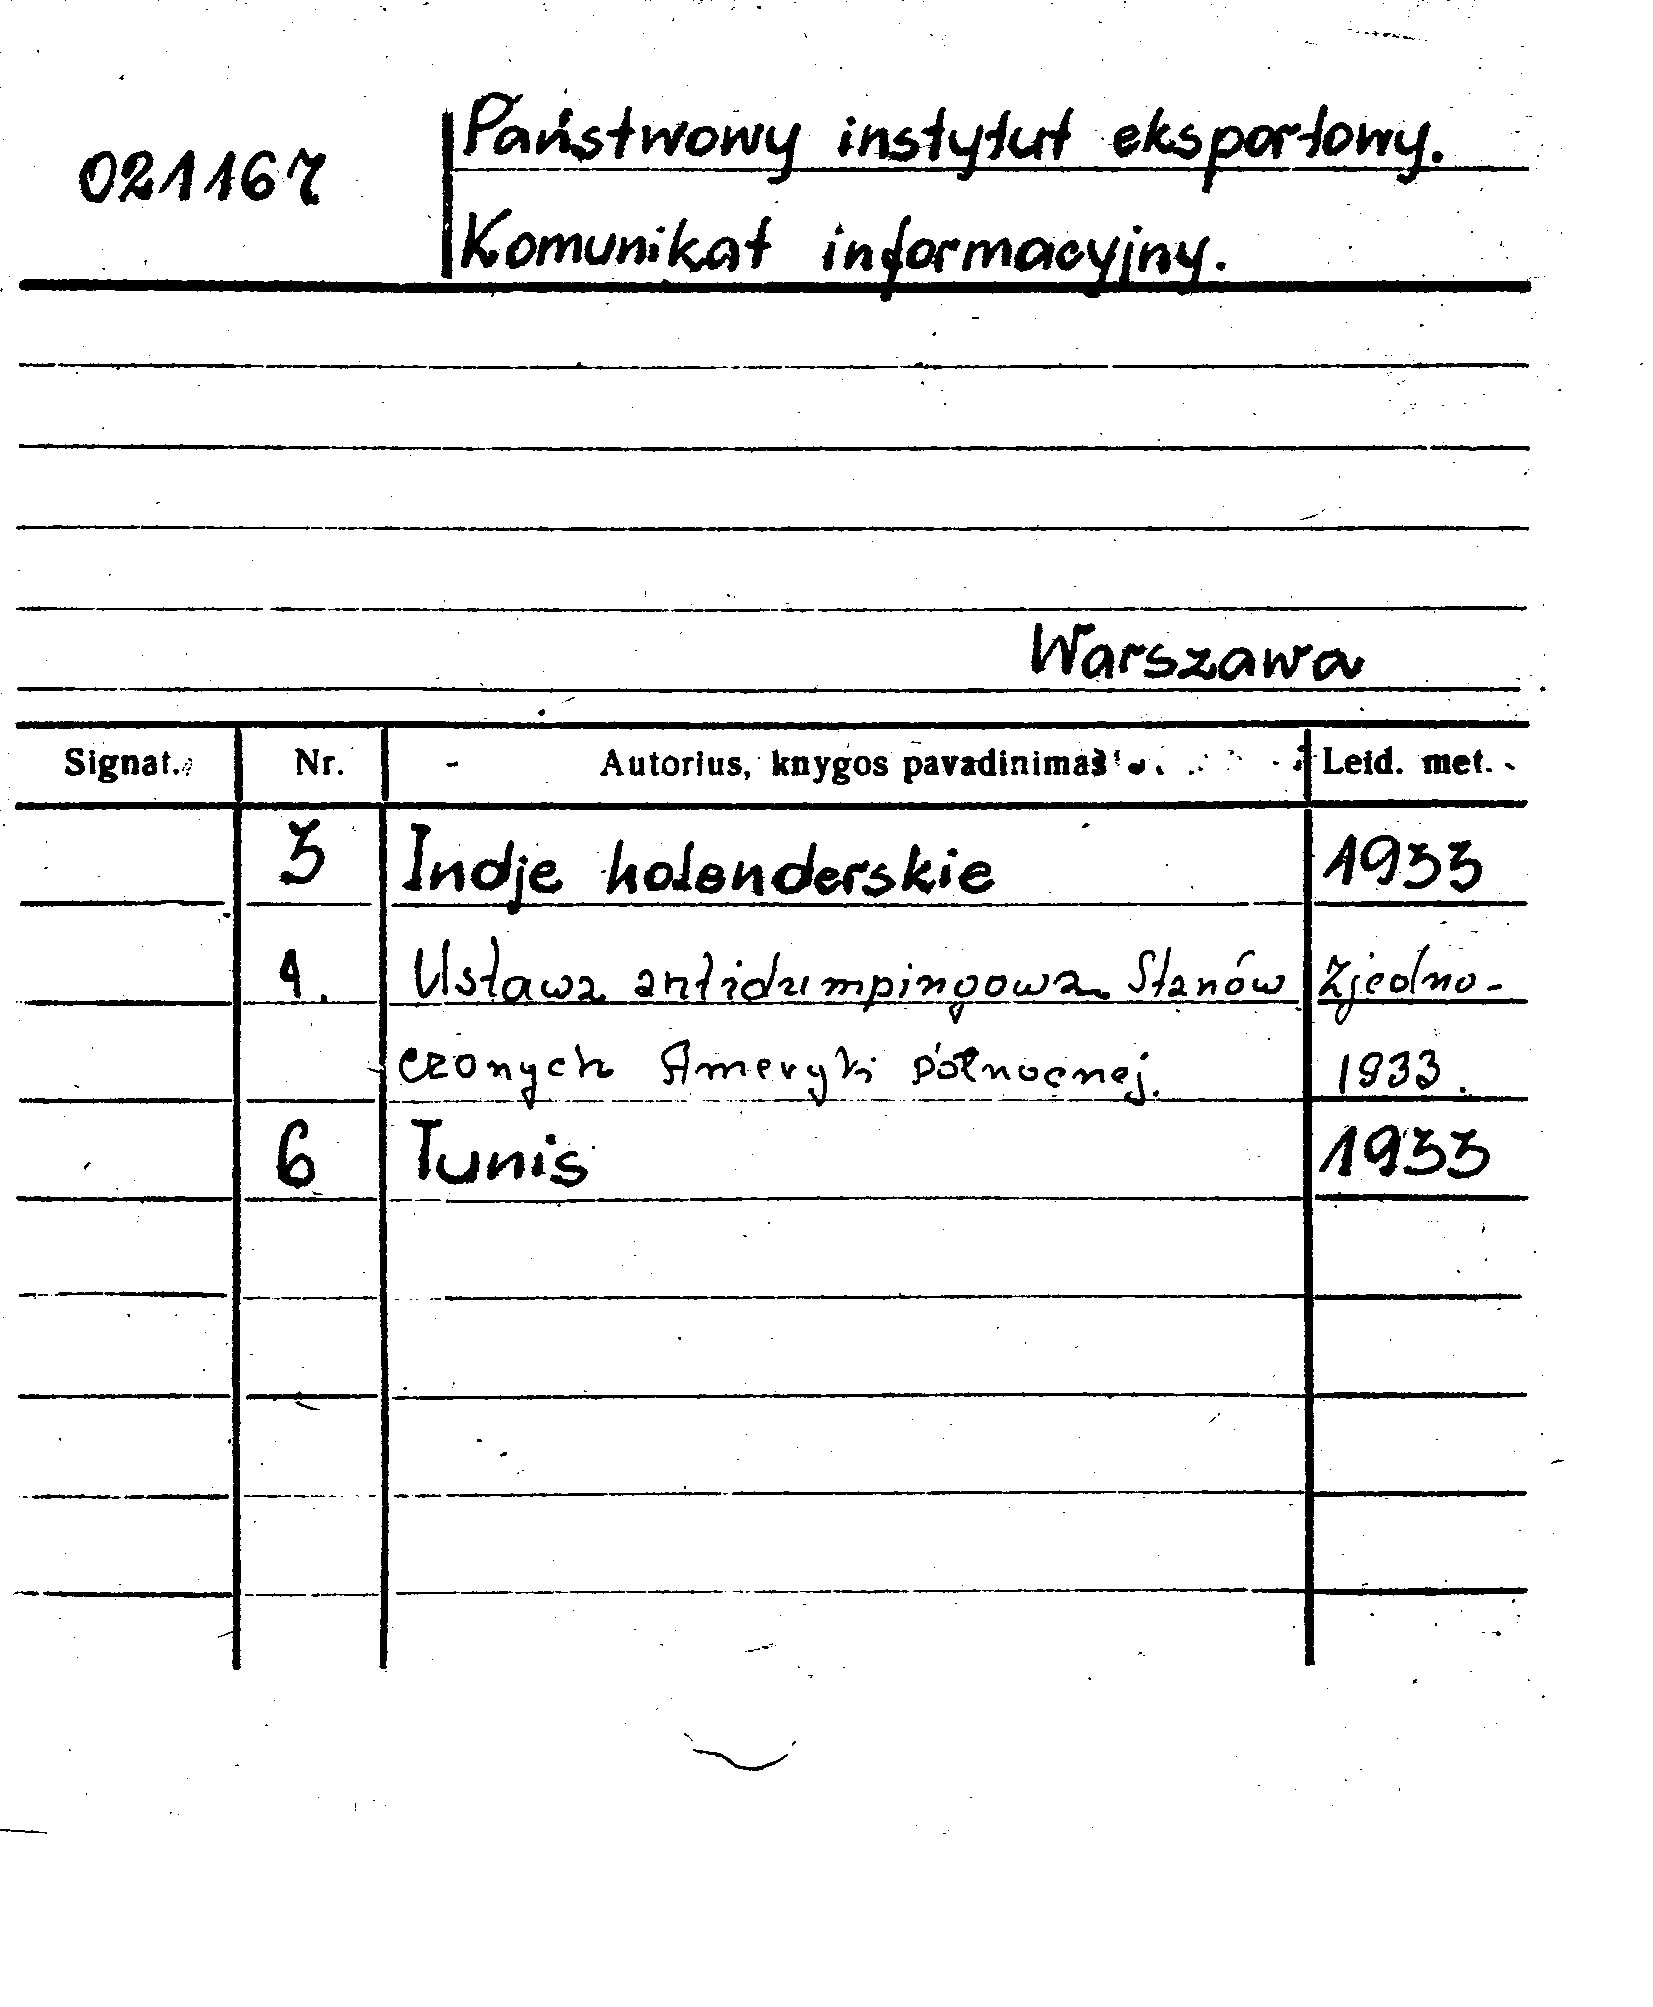 021167
Państwowy instytut eksportowy.
Komunikat informacyjny.
Warszawa
Signat. Nr. Autorius, knygos pavadinimas Leid. met.
3 Indje holenderskie 1933
4. Ustawa antidumpingowa Stanów Zjedno-
czonych Ameryki północnej. 1933.
6 Tunis 1933